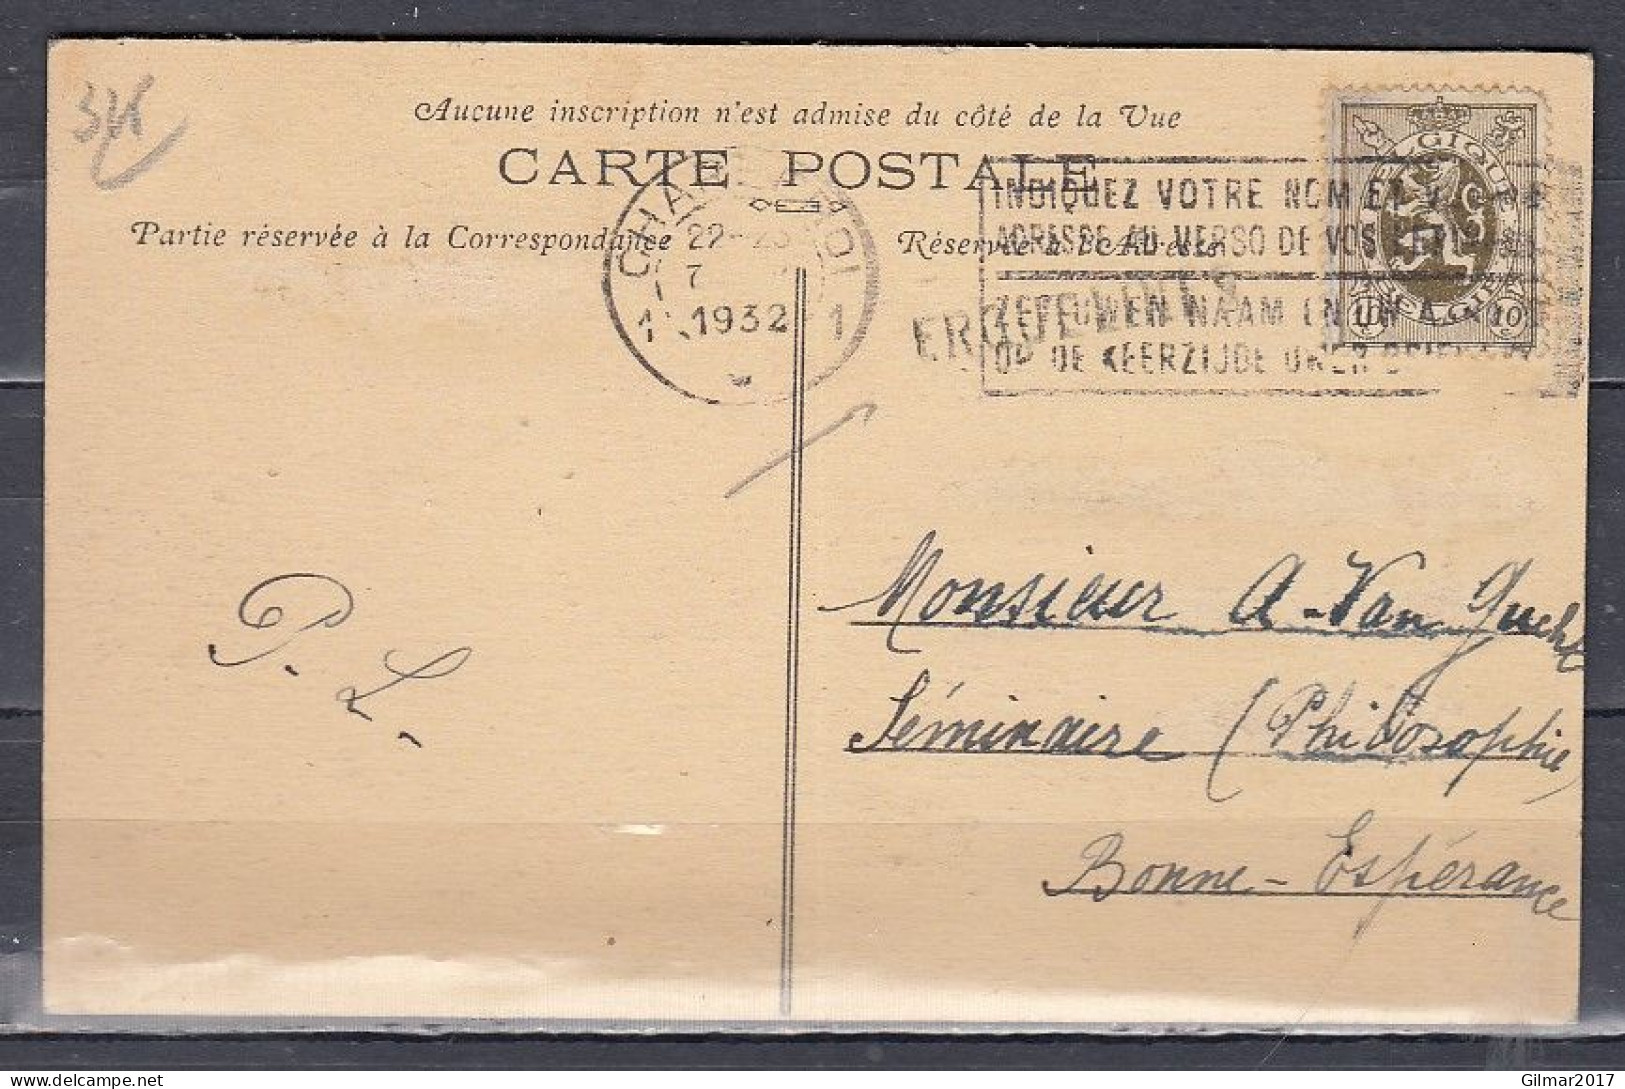 Aucune inscription n'est admise du côté de la Vue
CARTE POSTALE
Partie réservée à la Correspondance
Réservée à l'Adresse
22-23
7
1932
1 1
INDIQUEZ VOTRE NOM ET
ADRESSE AU VERSO DE VOS
NAAM EN UW
OP DE KEERZIJDE UWER
BELGIQUE
BELGIË
10 10
P. L.
Monsieur A. Van Gucht
Séminaire (Philosophie)
Bonne-Espérance
delcampe.net
Gilmar2017